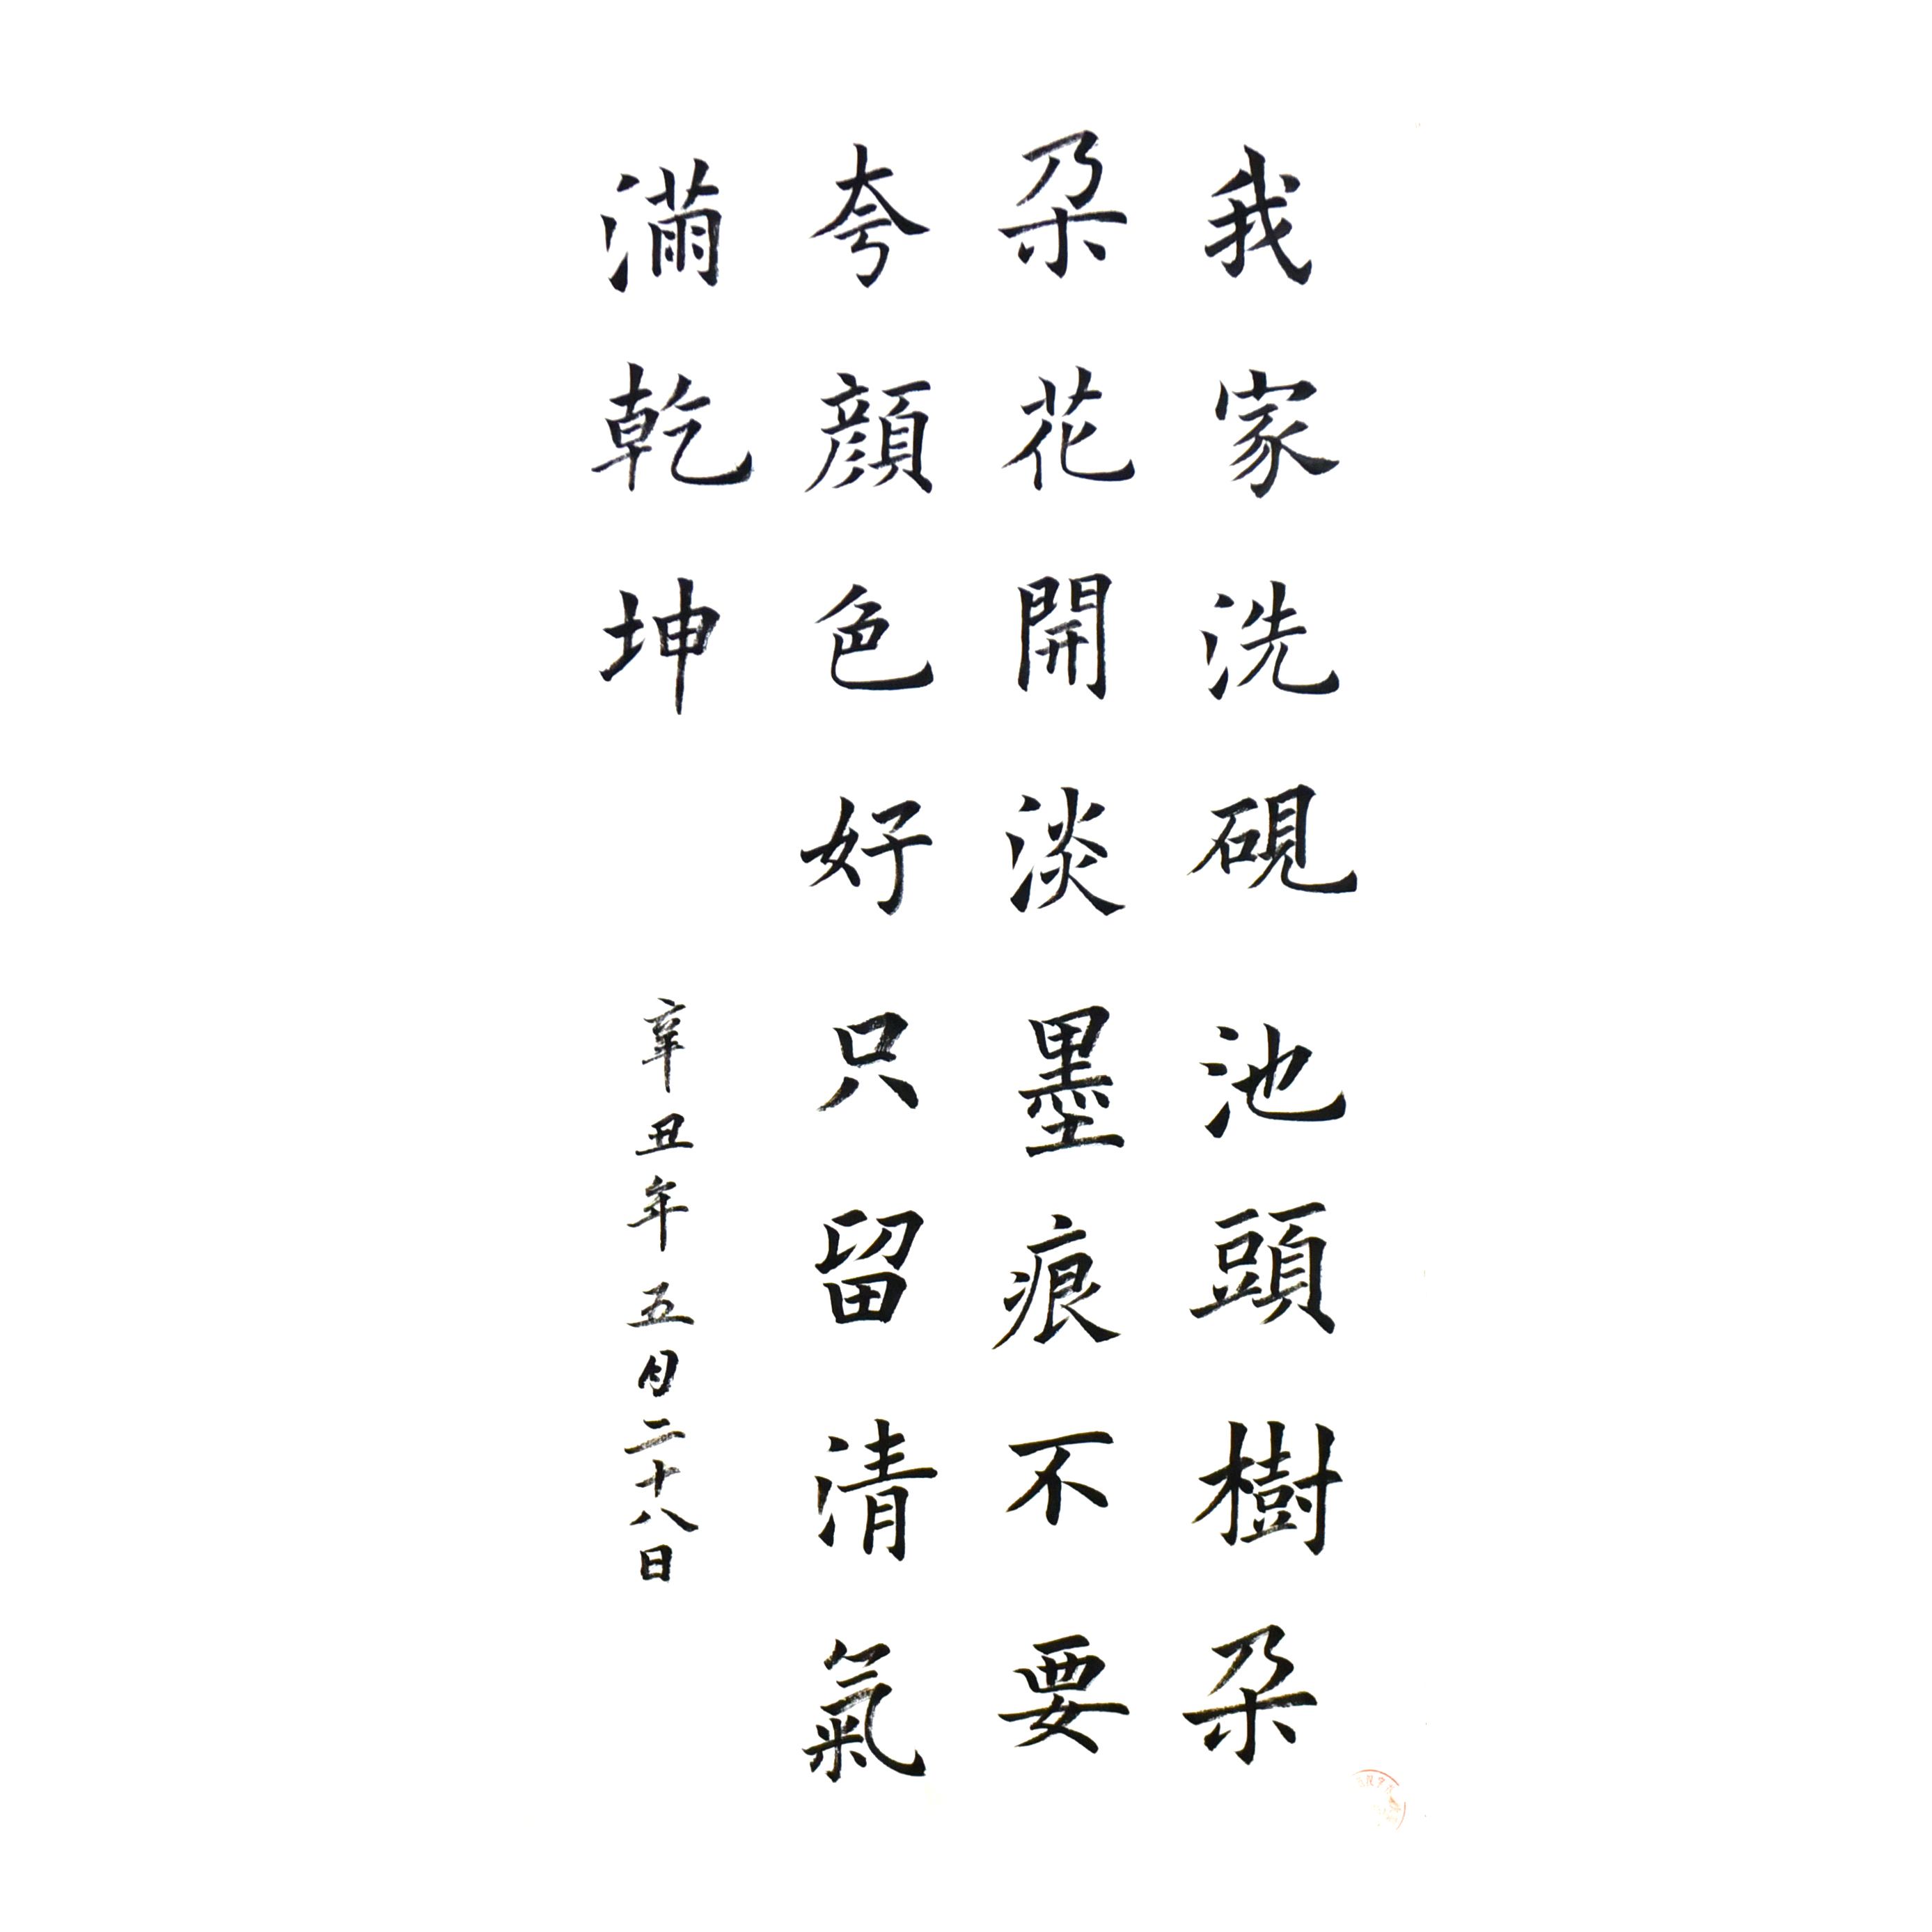 我家洗硯池頭樹朵
朵花開淡墨痕不要
夸顔色好只留清氣
滿乾坤
辛丑年五月二十八日